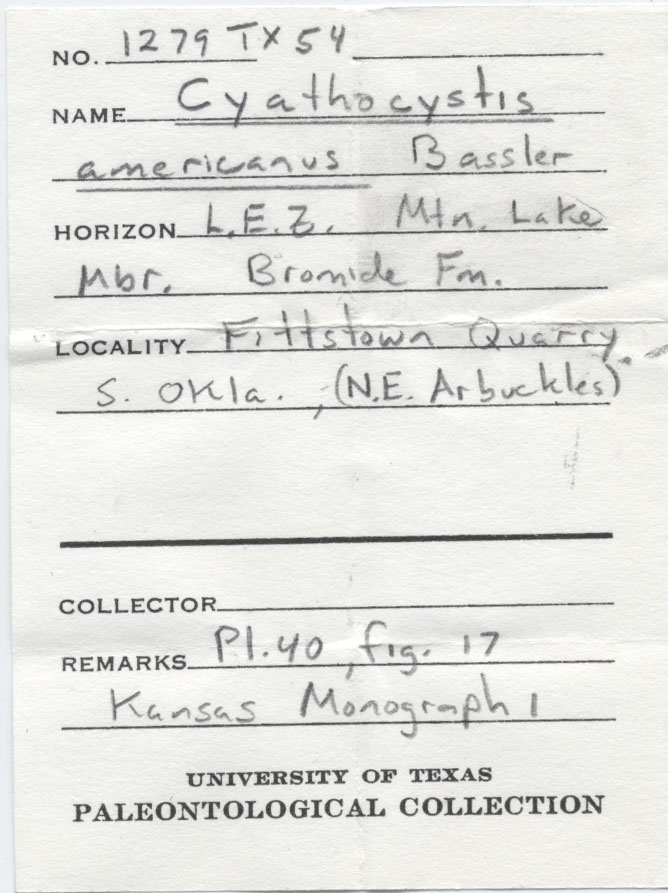 NO. 1279 TX 54
NAME Cyathocystis
americanus Bassler
HORIZON L.E.Z. Mtn. Lake
Mbr. Bromide Fm.
LOCALITY Fittstown Quarry
S. Okla., (N.E. Arbuckles)
COLLECTOR
REMARKS Pl. 40, fig. 17
Kansas Monograph 1
UNIVERSITY OF TEXAS
PALEONTOLOGICAL COLLECTION